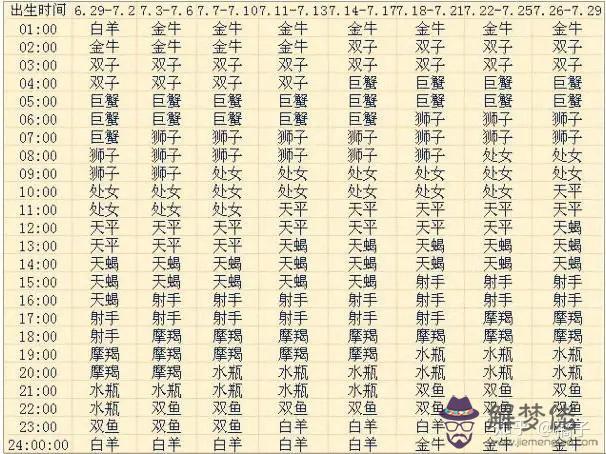 出生时间 6.29-7.2 7.3-7.6 7.7-7.10 7.11-7.13 7.14-7.17 7.18-7.21 7.22-7.25 7.26-7.29
01:00 白羊 金牛 金牛 金牛 金牛 金牛 金牛 金牛
02:00 金牛 金牛 金牛 金牛 双子 双子 双子 双子
03:00 双子 双子 双子 双子 双子 双子 双子 双子
04:00 双子 双子 双子 双子 巨蟹 巨蟹 巨蟹 巨蟹
05:00 巨蟹 巨蟹 巨蟹 巨蟹 巨蟹 巨蟹 巨蟹 巨蟹
06:00 巨蟹 巨蟹 巨蟹 巨蟹 巨蟹 狮子 狮子 狮子
07:00 巨蟹 狮子 狮子 狮子 狮子 狮子 狮子 狮子
08:00 狮子 狮子 狮子 狮子 狮子 狮子 处女 处女
09:00 狮子 狮子 处女 处女 处女 处女 处女 处女
10:00 处女 处女 处女 处女 处女 处女 处女 天平
11:00 处女 处女 处女 天平 天平 天平 天平 天平
12:00 天平 天平 天平 天平 天平 天平 天平 天蝎
13:00 天平 天平 天平 天蝎 天蝎 天蝎 天蝎 天蝎
14:00 天蝎 天蝎 天蝎 天蝎 天蝎 天蝎 天蝎 天蝎
15:00 天蝎 天蝎 天蝎 天蝎 天蝎 射手 射手 射手
16:00 天蝎 射手 射手 射手 射手 射手 射手 射手
17:00 射手 射手 射手 射手 射手 射手 摩羯 摩羯
18:00 射手 摩羯 摩羯 摩羯 摩羯 摩羯 摩羯 摩羯
19:00 摩羯 摩羯 摩羯 摩羯 摩羯 水瓶 水瓶 水瓶
20:00 摩羯 摩羯 水瓶 水瓶 水瓶 水瓶 水瓶 水瓶
21:00 水瓶 水瓶 水瓶 水瓶 水瓶 双鱼 双鱼 双鱼
22:00 水瓶 双鱼 双鱼 双鱼 双鱼 双鱼
23:00 双鱼 双鱼 双鱼 白羊 白羊 白羊
24:00:00 白羊 白羊 白羊 白羊 白羊 金牛 金牛 金牛
解梦佬